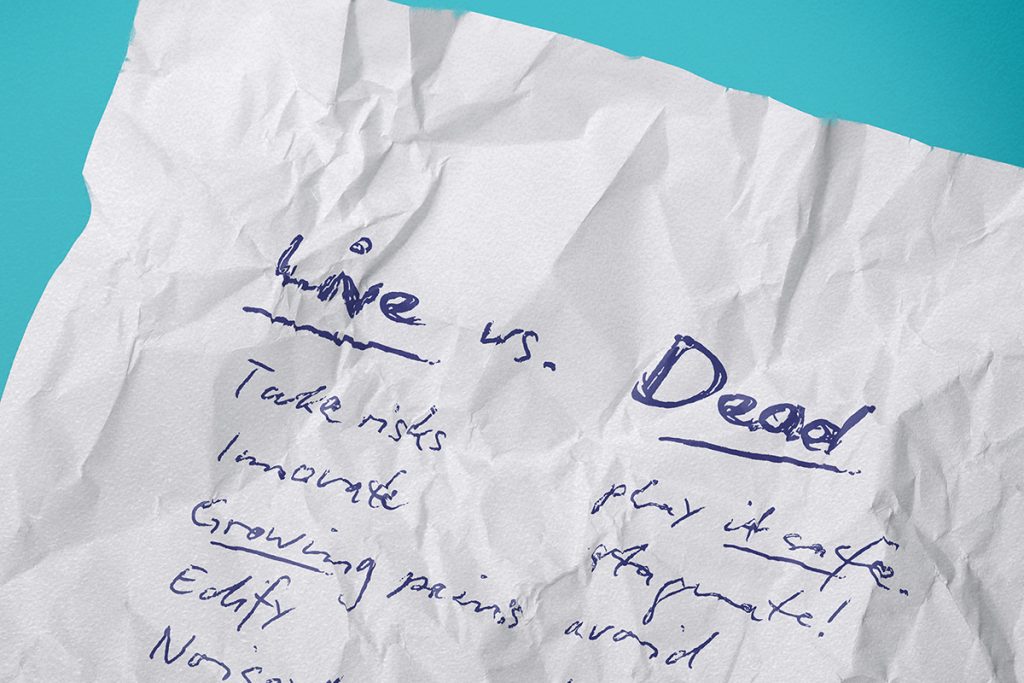 Live vs. Dead
Take risks
Innovate
Growing pains
Edify
play it safe.
stagnate!
avoid